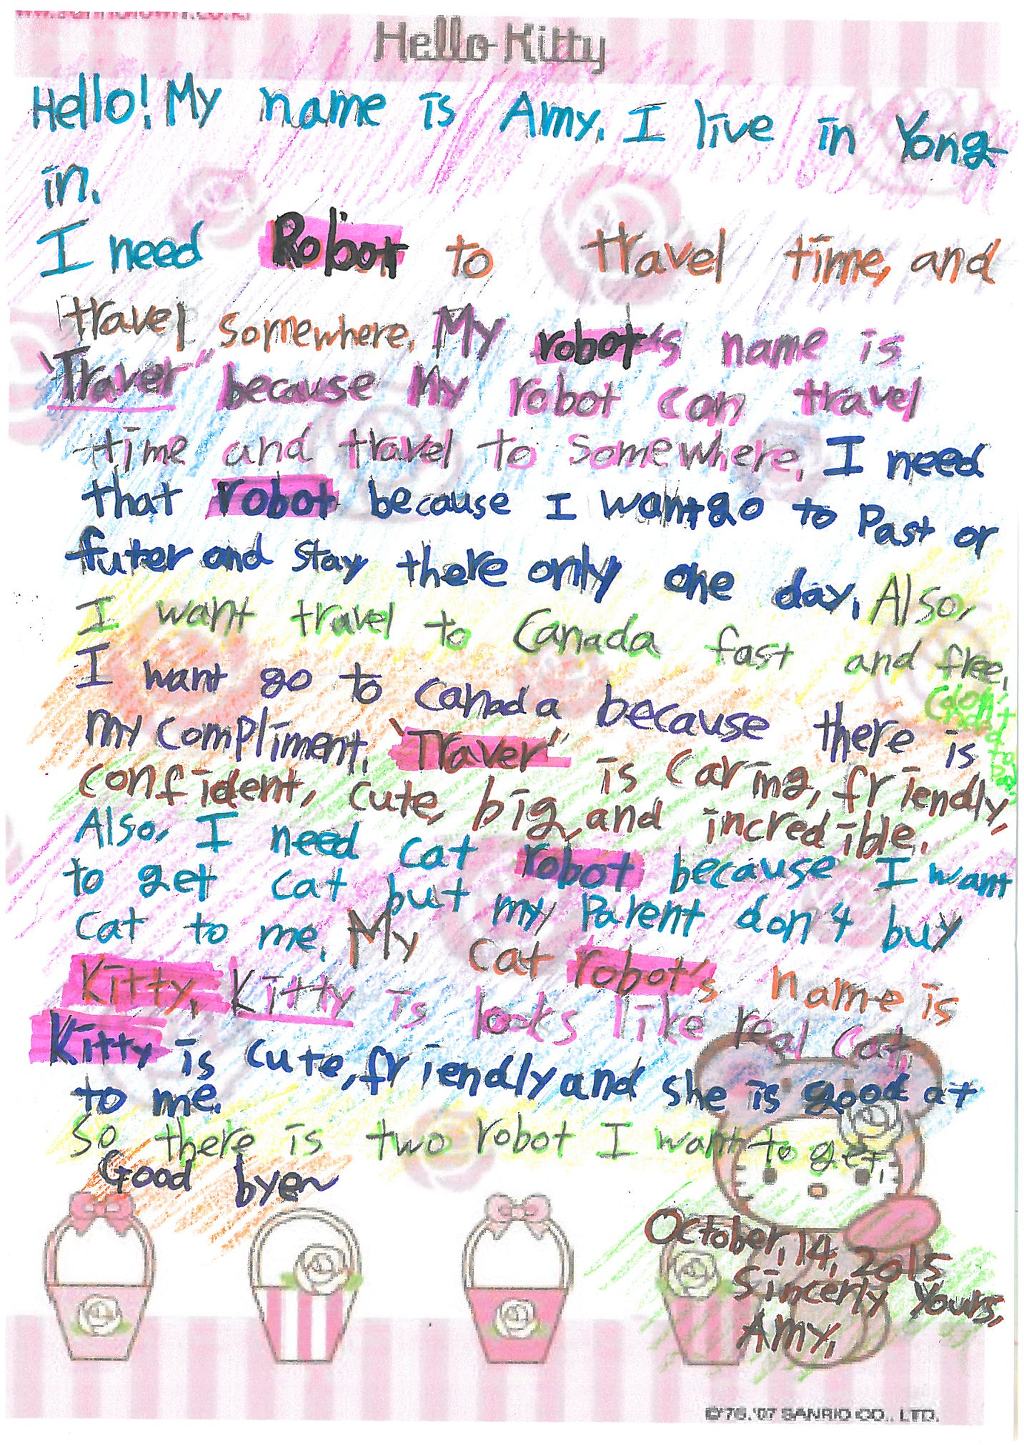 Hello Kitty
Hello! My name is Amy. I live in Yong
in.
I need Robot to travel time, and
travel somewhere. My robot's name is
"Traver" because My robot can travel
time and travel to somewhere. I need
that robot because I want go to Past or
futer and stay there only one day. Also,
I want travel to Canada fast and free.
I want go to Canada because there is
my compliment. "Traver" is caring, friendly,
confident, cute, big, and incredible.
Also, I need cat robot because I want
to get cat but my Parent don't buy
cat to me. My cat robot's name is
Kitty. Kitty is looks like real cat.
Kitty is cute, friendly and she is good at
to me.
So there is two robot I want to get.
Good bye~
October, 14, 2015
Sincerly Yours,
Amy.
©'76,'07 SANRIO CO., LTD.